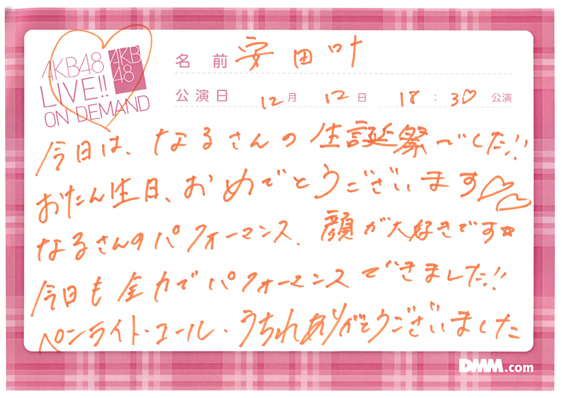 AKB48
LIVE!!
ON DEMAND
AKB
48
名 前 安田叶
公演日 12月 12日 18:30♡ 公演
今日は、なるさんの生誕祭でした!!
おたん生日、おめでとうございます♡♡
なるさんのパフォーマンス、顔が大好きです☆
今日も全力でパフォーマンスできました!!
ペンライト・コール・うちわありがとうございました
DMM.com